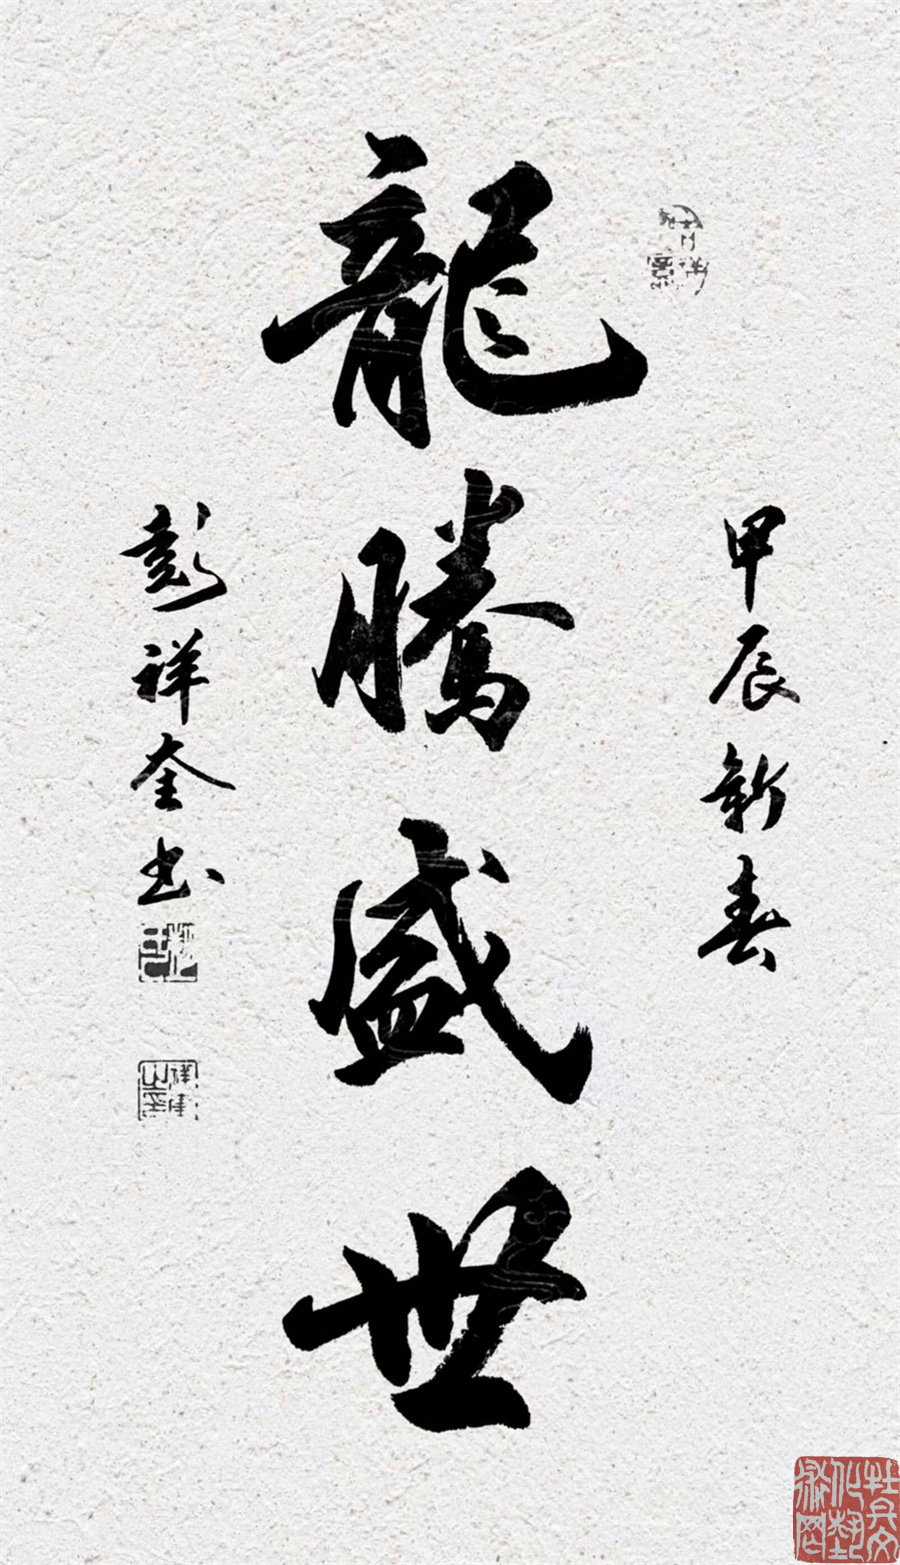 甲辰新春
龍騰盛世
彭祥奎书